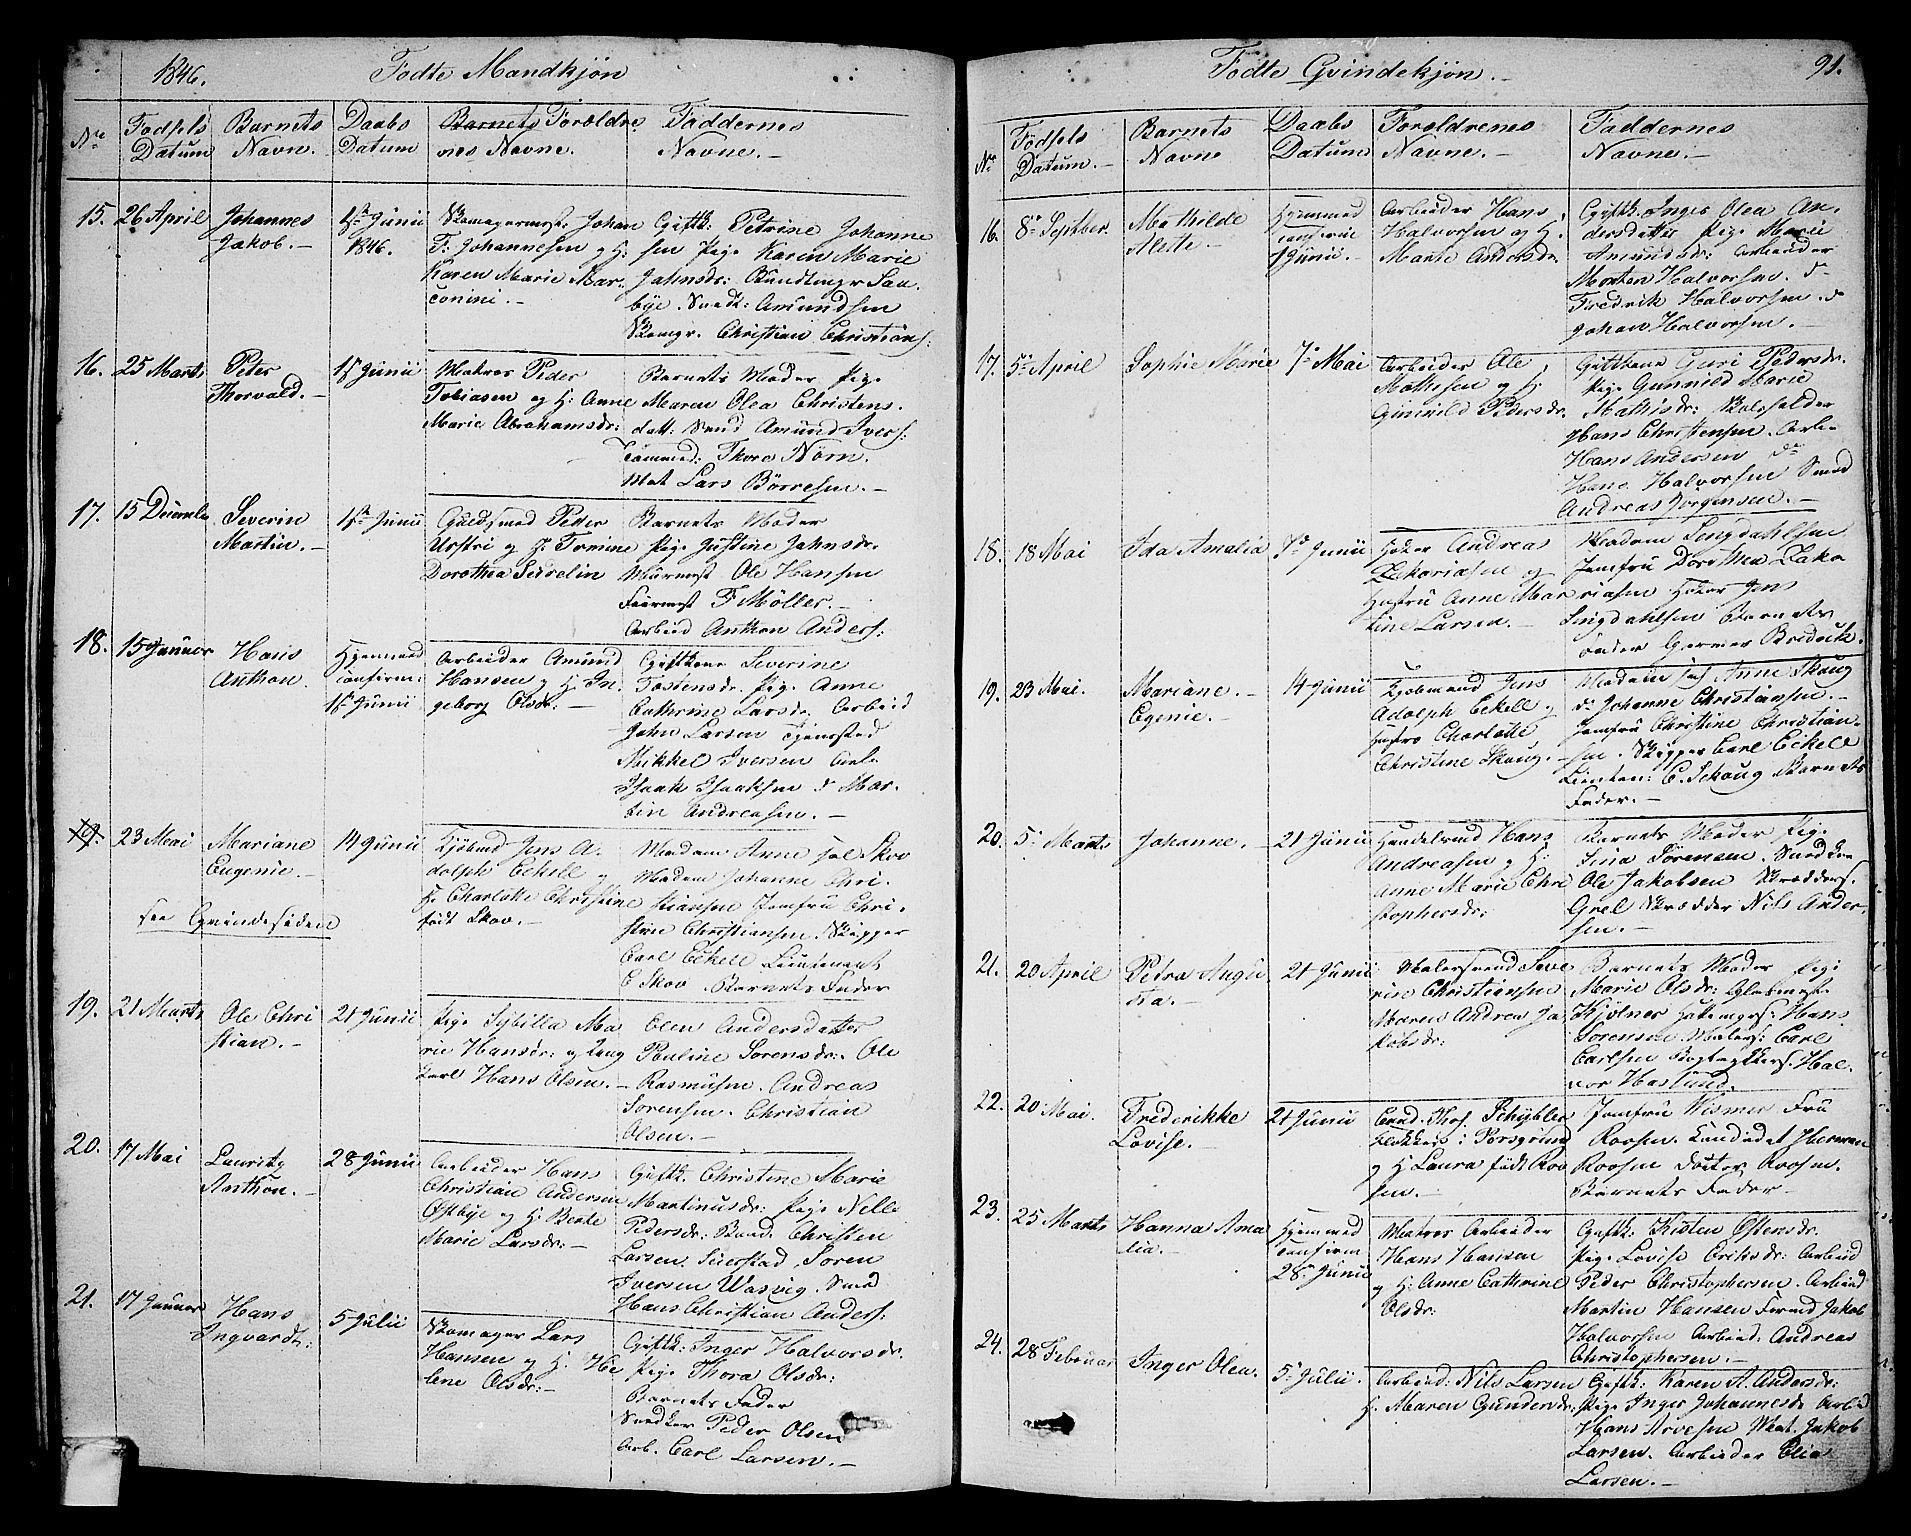 1846. Fødte Mandkjøn
No Fødsels Datum Barnets Navn. Daabs Datum Barnets Forældrenes Navne. Faddernes Navne.
15. 26 April Johannes Jakob. 1ste Junii 1846.
Skomagermest: Johan
F: Johannesen og H:
Karen Marie Mar
conini.
Gift: Petrine Johanne
sen Pige Karen Marie
Jahnsdr: Bundtmagr Sau
bye. Snedk: Amundsen
Skomgr. Christian Christians:
16. 25 Marts Peter Thorvald. 1ste Junii
Matros Peder
Tobiasen og H: Anne
Marie Abrahamsdr:
Barnets Moder Pige
Maren Olea Christens
datt: Svend Amund Ivers:
Tømmed: Thore Nörn
Mat Lars Börresen.
17. 15 Decembr Severin Martin. 1ste Junii
Guldsmed Peder
og H. Tomine
Dorothea Seirelin
Barnets Moder
Pige Justine Jahnsdr.
Murmest Ole Hansen
Feiermest F Möller.
Arbeid Anthon Anders:
18. 15 Januar Hans Anthon. Hjemmed confirm: 1ste Junii
Arbeider Amund
Hansen og H. In
geborg Olsdr.
Giftkone Severine
Tostensdr. Pige Anne
Cathrine Larsdr. Arbeid
John Larsen Tjenested
Mikkel Iversen Arb.
Isaak Isaaksen d Mar
tin Andreasen.
19. 23 Mai Mariane Eugenie. 14 Junii
see Qvindesiden
Kjöbmd Jens A
dolph Eckell og
H. Charlotte Christine
født Skov.
Madam Anne föd Skov
Madam Johanne Chri
stiansen Jomfru Chri
stine Christiansen. Skipper
Carl Eckell Lieutenant
C Skov Barnets Fader
19. 21 Marts Ole Christian. 21 Junii
Pige Sybilla Ma
rie Hansdr: og Ung
karl Hans Olsen.
Olen Andersdatter
Pauline Sörensdr. Ole
Rasmusen. Andreas
Sorensen. Christian
Olsen.
20. 17 Mai Lauritz Anthon. 28 Junii
Arbeider Hans
Christian Andersen
Østbye og H. Berte
Marie Larsdr:
Giftk. Christine Marie
Martinusdr: Pige Nelle
Pedersdr: Christen
Larsen Seierstad, Soren
Iversen Wasvig. Smed
Hans Christian Anders:
21. 17 Januar Hans Ingvardt: 5 Julii
Skomager Lars
Hansen og H. He
lene Olsdr:
Giftk: Inger Halvorsdr.
Pige Thora Olsdr:
Barnets Fader
Snedker Peder Olsen
Arb. Carl Larsen.
Fødte Qvindekjøn. 91.
No Fødsels Datum. Barnets Navne Daabs Datum Forældrenes Navne. Faddernes Navne.
16. 8de Septber. Mathilde Alette Hjemmed confirm 1 Junii.
Arbeider Hans
Halvorsen og H:
Marte Andersdr
Giftk. Inger Olea An
dersdatter Pige Marie
Amundsdr: Arbeider
Morten Halvorsen. do
Fredrik Halvorsen. do
Johan Halvorsen.
17. 5te April Sophie Marie 7de Mai
Arbeider Ole
Mathisen og H:
Gunnild Pedersdr.
Giftkone Guri Pedersdr.
Pige Gunnild Marie
Mathisdr: Skoleholder
Hans Christensen. Arb.
Hans Andersen do
Hans Halvorsen Smed
Andreas Jørgensen.
18. 18 Mai Ida Amalia 7de Junii
Høker Andreas
Zakariasen og
Hustru Anne Mar
tine Larsen.
Madam Lingdahlsen
Jomfru Dorthea Zaka
riasen Høker Jens
Lingdahlsen Barnets
Fader Garver Bredick.
19. 23 Mai. Mariane Egenie. 14 Junii
Kjöbmand Jens
Adolph Eckell og
Hustro Charlotte
Christine Skaug.
Madam Anne Skaug
do Johanne Christiansen.
Jomfru Christine Christian
sen. Skipper Carl Eckell
Lieuten: C. Schoug Barnets
Fader.
20. 5te Marts Johanne. 21 Junii
Handelsmd Hans
Andreasen og H:
Anne Marie Chri
stophersdr:
Barnets Moder Pige
Sina Sörensen. Snedker
Ole Jakobsen Skrædders.
Grel Skrædder Nils Ander
sen.
21. 20 April Petra Augusta. 21 Junii
Malersvend Seve
rin Christiansen
Maren Andrea Ja
kobsdr:
Barnets Moder Pige
Marie Olsdr: Glasmest.
Kjölner Hans
Sorensen Malers: Carl
Carlsen Bogtrykkers. Hal
vor Haslund.
22. 20 Mai. Frederikke Lovise. 21 Junii
Cand. Thos. Schybler
i Porsgrund
og H. Laura født Roo
sen.
Jomfru Wismer Fru
Roosen. Candidat Herman
Roosen Doctor Roosen.
Barnets Fader
23. 25 Marts Hanna Amalia. Hjemmed confirm 28 Junii
Matros Arbeider
Hans Hansen
og H. Anne Cathrine
Olsdr:
Giftk: Kisten Ostensdr.
Pige Lovise Eriksdr: Arbeid
Peder Christophersen. Arbeid
Martin Hansen Jakob
Halvorsen Arbeid: Andreas
Christophersen.
24. 28 Februar Inger Olea. 5te Julii.
Arbeid: Nils Larsen
H. Maren Gundersdr:
Giftk: Karen A. Andersdr:
Pige Inger Johannesdr Arbeid
Hans Arvesen Mat. Jakob
Larsen. Arbeider Elia
Larsen.